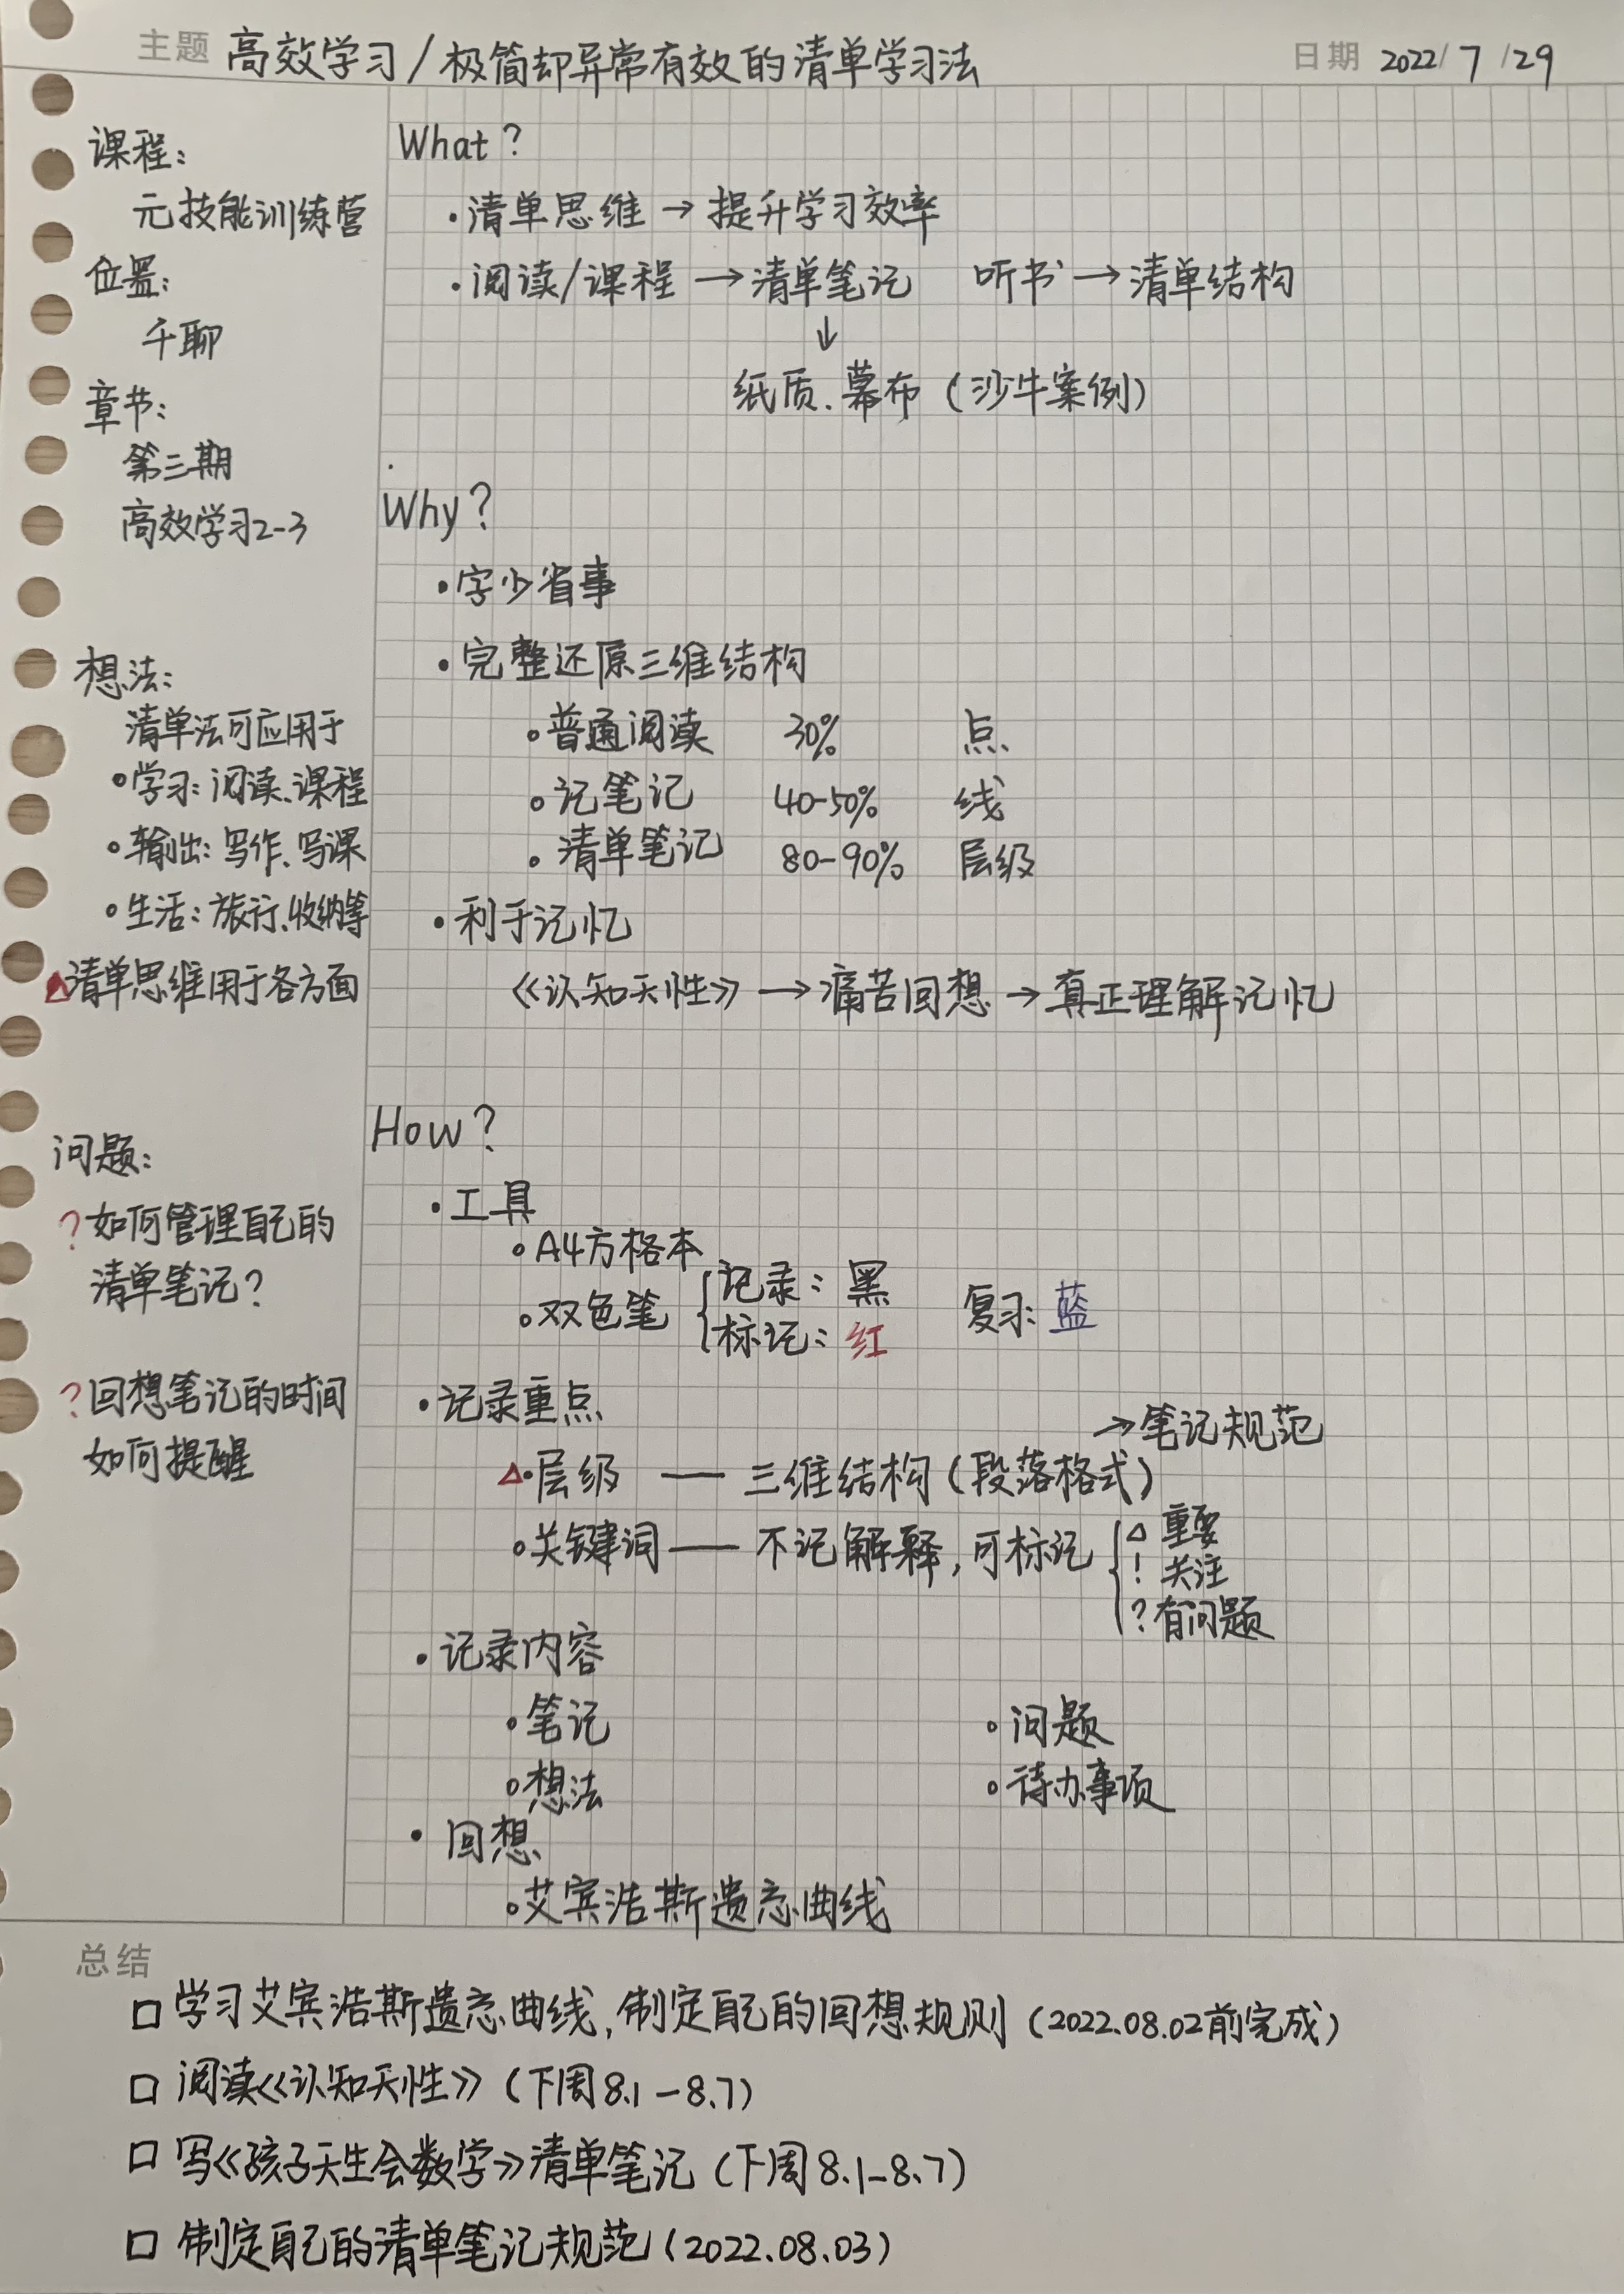 主题 高效学习/极简却异常有效的清单学习法 日期 2022/7/29
课程:
元技能训练营
位置:
千聊
章节:
第三期
高效学习2-3
想法:
清单法可应用于
•学习: 阅读、课程
•输出: 写作、写课
•生活: 旅行、收纳等
△清单思维用于各方面
问题:
?如何管理自己的
清单笔记?
?回想笔记的时间
如何提醒
What?
•清单思维→提升学习效率
•阅读/课程→清单笔记 听书→清单结构
↓
纸质、幕布(沙牛案例)
Why?
•字少省事
•完整还原三维结构
•普通阅读 30% 点
•记笔记 40-50% 线
•清单笔记 80-90% 层级
•利于记忆
《认知天性》→痛苦回想→真正理解记忆
How?
•工具
•A4方格本
•双色笔 { 记录: 黑
标记: 红 复习: 蓝
•记录重点
→笔记规范
△•层级 — 三维结构(段落格式)
•关键词 — 不记解释,可标记 { △ 重要
! 关注
? 有问题
•记录内容
•笔记 •问题
•想法 •待办事项
•回想
•艾宾浩斯遗忘曲线
总结
□ 学习艾宾浩斯遗忘曲线,制定自己的回想规则(2022.08.02前完成)
□ 阅读《认知天性》(下周8.1-8.7)
□ 写《孩子天生会数学》清单笔记(下周8.1-8.7)
□ 制定自己的清单笔记规范(2022.08.03)